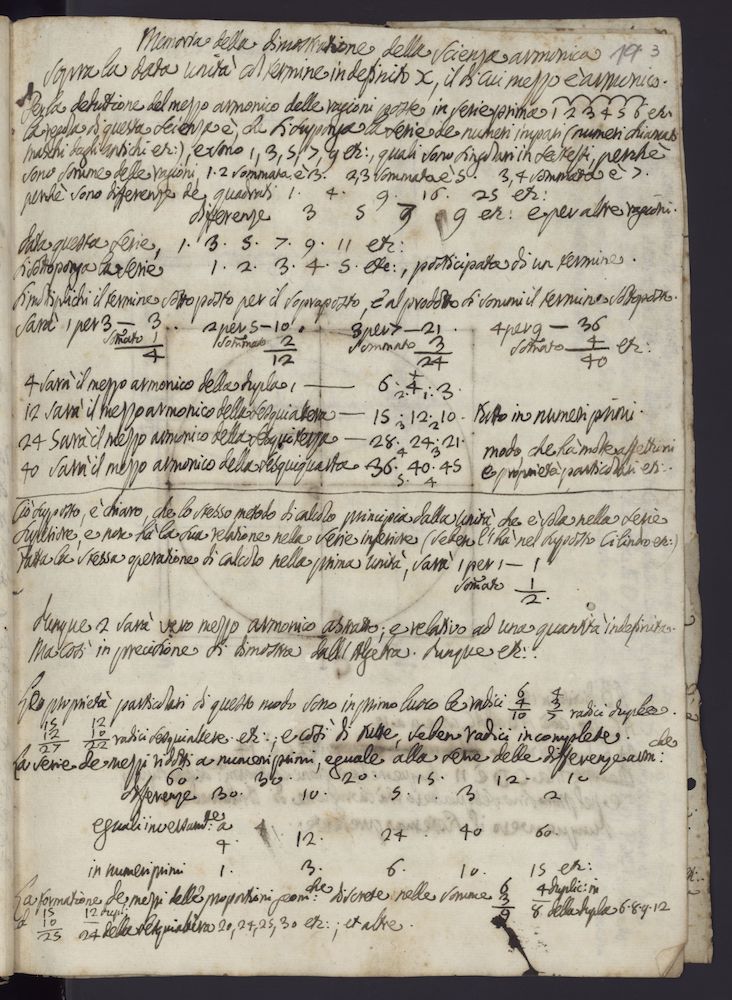 Memoria della dimostratione della scienza armonica 19 3
sopra la data unità al termine indefinito x, il di cui mezzo è armonico.
Per la deduttione del mezzo armonico delle ragioni poste in serie prima 1 2 3 4 5 6 etc.
la regola di questa scienza è, che si supponga la serie de numeri impari (numeri chiamati
maschi dagli antichi etc:), e sono 1, 3, 5, 7, 9 etc:, quali sono singolari in se stessi, perchè
sono somme delle ragioni, 1. 2 sommata è 3. 2, 3 sommata è 5. 3, 4 sommata è 7.
perchè sono differenze de quadrati 1. 4. 9. 16. 25 etc:
differenze 3 5 7 9 etc: e per altre ragioni.
data questa serie, 1. 3. 5. 7. 9. 11 etc:
si sottoponga la serie 1. 2. 3. 4. 5. etc:, posticipata di un termine.
si moltiplichi il termine sottoposto per il sopraposto, e al prodotto si sommi il termine sottoposto.
sarà 1 per 3 — 3 .. 2 per 5 — 10 . 3 per 7 — 21 . 4 per 9 — 36
sommato 1 sommato 2 sommato 3 sommato 4 etc:
4 12 24 40
4 sarà il mezzo armonico della dupla, — 6. 4. 3.
2 1
12 sarà il mezzo armonico della sesquialtera — 15. 12. 10. tutto in numeri primi.
3 2
24 sarà il mezzo armonico della sesquiterza — 28. 24. 21.
4 3
modo, che hà molte affettioni
40 sarà il mezzo armonico della sesquiquarta 36. 40. 45
5. 4
e proprietà particolari etc:
Ciò supposto, è chiaro, che lo stesso metodo di calcolo principia dalla unità, che è sola nella serie
superiore, e non hà la sua relatione nella serie inferiore (seben l'hà nel supposto Cilindro etc:)
fatta la stessa operatione di calcolo nella prima unità, sarà 1 per 1 — 1
sommato 1
2.
dunque 2 sarà vero mezzo armonico astratto, e relativo ad una quantità indefinita.
Ma così in precisione si dimostra dall'Algebra. dunque etc:
Le proprietà particolari di questo modo sono in primo luoco le radici 6 4
4 3 radici duplae.
10 7
15 12
12 10 radici sesquialtere etc:, e così di tutte, seben radici incomplete.
27 22
La serie de mezzi ridotti a numeri primi, eguale alla serie delle differenze arm:che
60. 30. 20. 15. 12. 10
differenze 30. 10. 5. 3 2
eguali inversamte a
4. 12. 24 40 60.
in numeri primi 1. 3. 6. 10. 15 etc:
La formatione de mezzi delle proportioni geom:che discrete nelle somme 6 4 duplic: in
3 8 della dupla 6. 8. 9. 12
9
15 12 dupl:
10 24 della sesquialtera 20, 24, 25, 30 etc:; et altre.
25